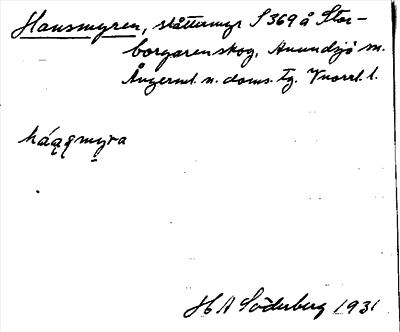 Hansmyren, slåttermyr S 369 å Stor-
borgarens skog, Anundsjö sn.
Ångerml. n. doms. tg. Vnorrl. l.
háąąmyra
H A Söderberg 1931